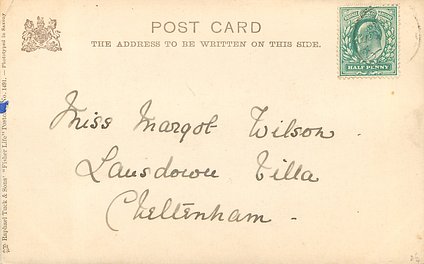 POST CARD
THE ADDRESS TO BE WRITTEN ON THIS SIDE.
HALF PENNY
Miss Margot Wilson.
Lansdown Villa
Cheltenham -
Raphael Tuck & Sons' "Fisher Life" No. 1491. — Phototyped in Saxony